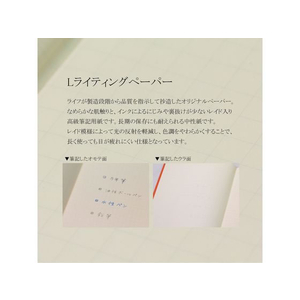 Lライティングペーパー
ライフが製造段階から品質を指示して抄造したオリジナルペーパー。
なめらかな紙触りと、インクによるにじみや裏抜けが少ないレイド入り
高級筆記用紙です。長期の保存にも耐えられる中性紙です。
レイド模様によって光の反射を軽減し、色調をやわらかくすることで、
長く使っても目が疲れにくい仕様となっています。
▼筆記したオモテ面
▼筆記したウラ面